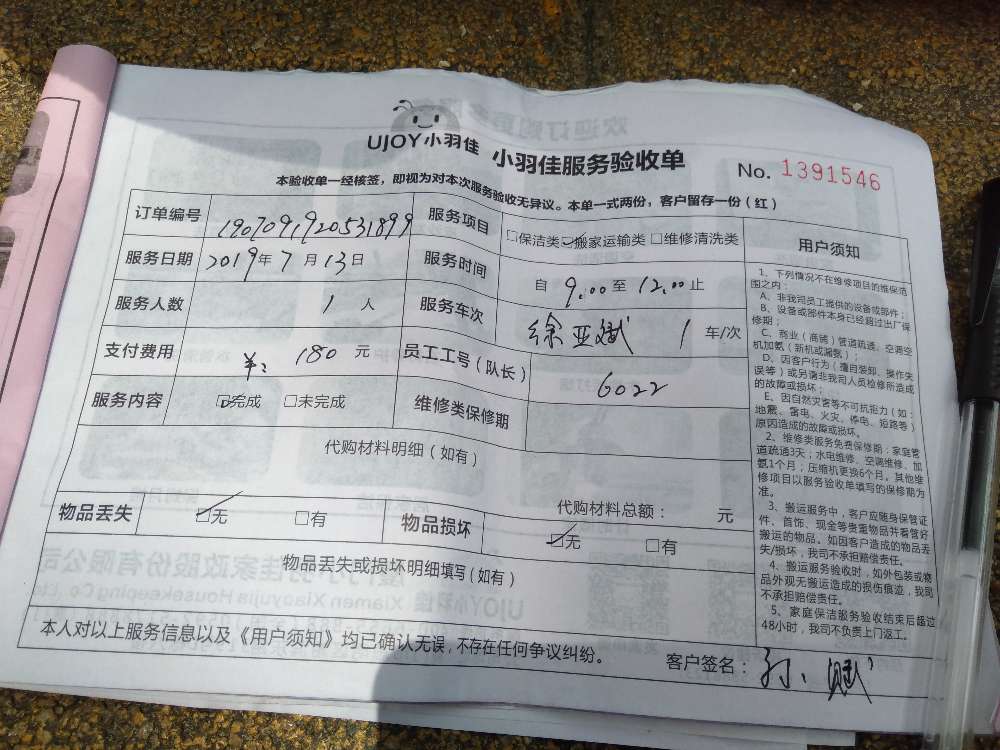 UJOY小羽佳 小羽佳服务验收单 No. 1391546
本验收单一经核签，即视为对本次服务验收无异议。本单一式两份，客户留存一份（红）
订单编号 1907091920531899 服务项目 □保洁类 ☑搬家运输类 □维修清洗类
服务日期 2019年7月13日 服务时间 自 9:00 至 12:00 止
服务人数 1 人 服务车次 徐亚斌 1 车/次
支付费用 ¥: 180 元 员工工号（队长） 6022
服务内容 ☑完成 □未完成 维修类保修期
代购材料明细（如有）
代购材料总额： 元
物品丢失 ☑无 □有 物品损坏 ☑无 □有
物品丢失或损坏明细填写（如有）
本人对以上服务信息以及《用户须知》均已确认无误，不存在任何争议纠纷。
客户签名：孙
用户须知
1、下列情况不在维修项目的维保范
围之内：
A、非我司员工提供的设备或部件；
B、设备或部件本身已经超过出厂保
修期；
C、商业（商铺）管道疏通、空调空
机加氨（新机或漏氨）；
D、因客户行为（擅自装卸、操作失
误等）或另请非我司人员检修所造成
的故障或损坏；
E、因自然灾害等不可抗拒力（如：
地震、雷电、火灾、停电、短路等）
原因造成的故障或损坏。
2、维修类服务免费保修期：家庭管
道疏通3天；水电维修、空调维修、加
氨1个月；压缩机更换6个月。其他维
修项目以服务验收单填写的保修期为
准。
3、搬运服务中，客户应随身保管证
件、首饰、现金等贵重物品并看管好
搬运的物品。如因客户造成的物品丢
失/损坏，我司不承担赔偿责任。
4、搬运服务验收时，如外包装或物
品外观无搬运造成的损伤痕迹，我司
不承担赔偿责任。
5、家庭保洁服务验收结束后超过
48小时，我司不负责上门返工。